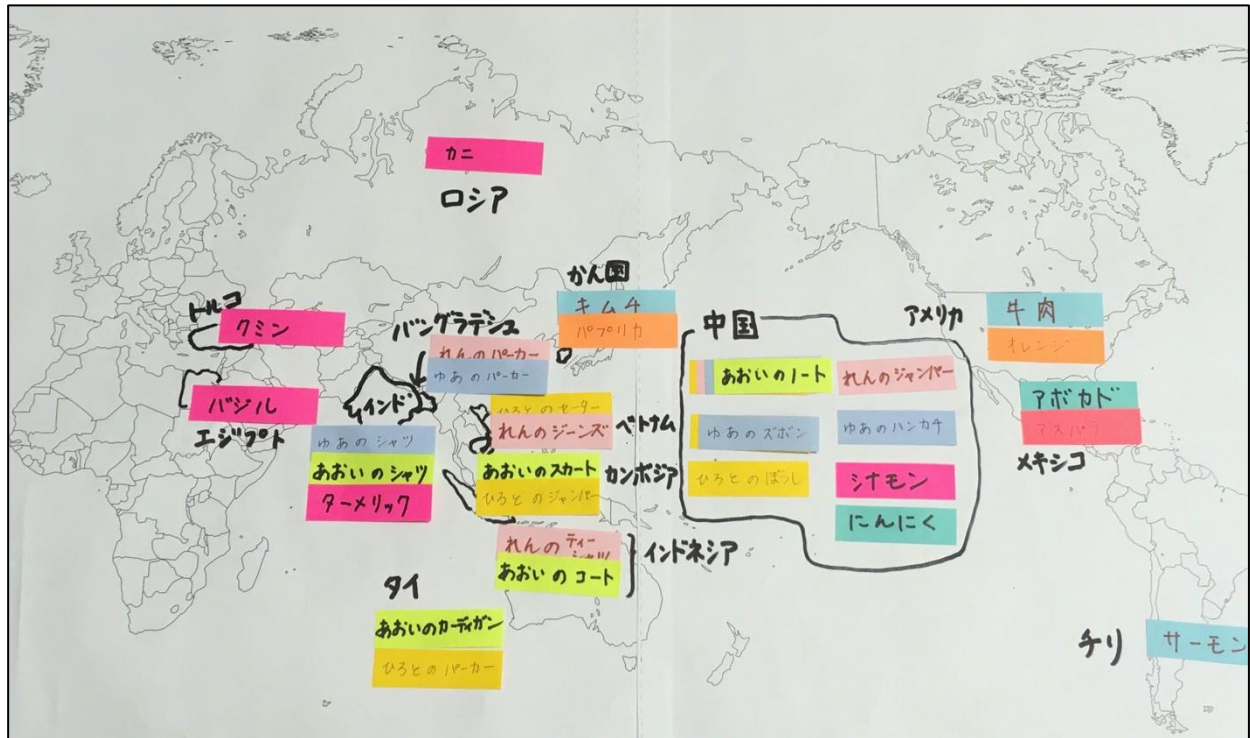 カニ
ロシア
トルコ
クミン
バジル
エジプト
バングラデシュ
れんのパーカー
ゆあのパーカー
インド
ゆあのシャツ
あおいのシャツ
ターメリック
かん国
キムチ
パプリカ
ひろとのセーター
れんのジーンズ
ベトナム
あおいのスカート
ひろとのジャンパー
カンボジア
れんのティー
シャツ
あおいのコート
インドネシア
タイ
あおいのカーディガン
ひろとのパーカー
中国
あおいのノート
れんのジャンパー
ゆあのズボン
ゆあのハンカチ
ひろとのぼうし
シナモン
にんにく
アメリカ
牛肉
オレンジ
アボカド
アスパラ
メキシコ
チリ
サーモン